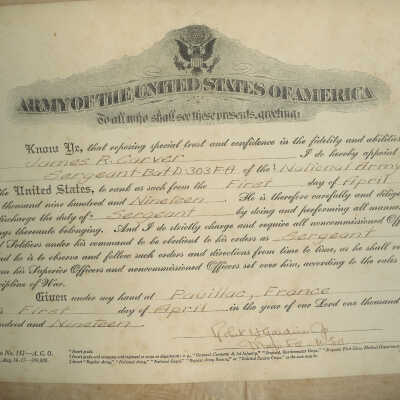 ARMY OF THE UNITED STATES OF AMERICA
To all who shall see these presents, greeting:
Know Ye, that reposing special trust and confidence in the fidelity and abilities
James R. Carver, I do hereby appoint
Sergeant Bat D 303 F.A. of the ¹National Army
the United States, to rank as such from the First day of April
thousand nine hundred and Nineteen. He is therefore carefully and dilige
discharge the duty of Sergeant by doing and performing all manner
things thereunto belonging. And I do strictly charge and require all noncommissioned Off
d Soldiers under his command to be obedient to his orders as Sergeant
nd he is to observe and follow such orders and directions from time to time, as he shall re
om his Superior Officers and noncommissioned Officers set over him, according to the rules
cipline of War.
Given under my hand at Pauillac, France
First day of April in the year of our Lord one thousand
ndred and Nineteen